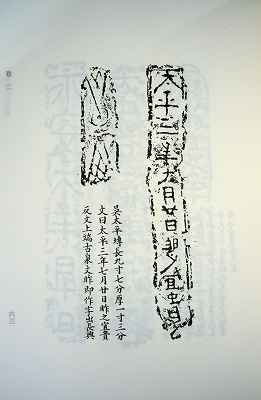 太平三年七月廿日昨之宜貴
吳太平塼長九寸七分厚一寸三分
文曰太平三年七月廿日昨之宜貴
反文上端古泉文昨即作字出長興